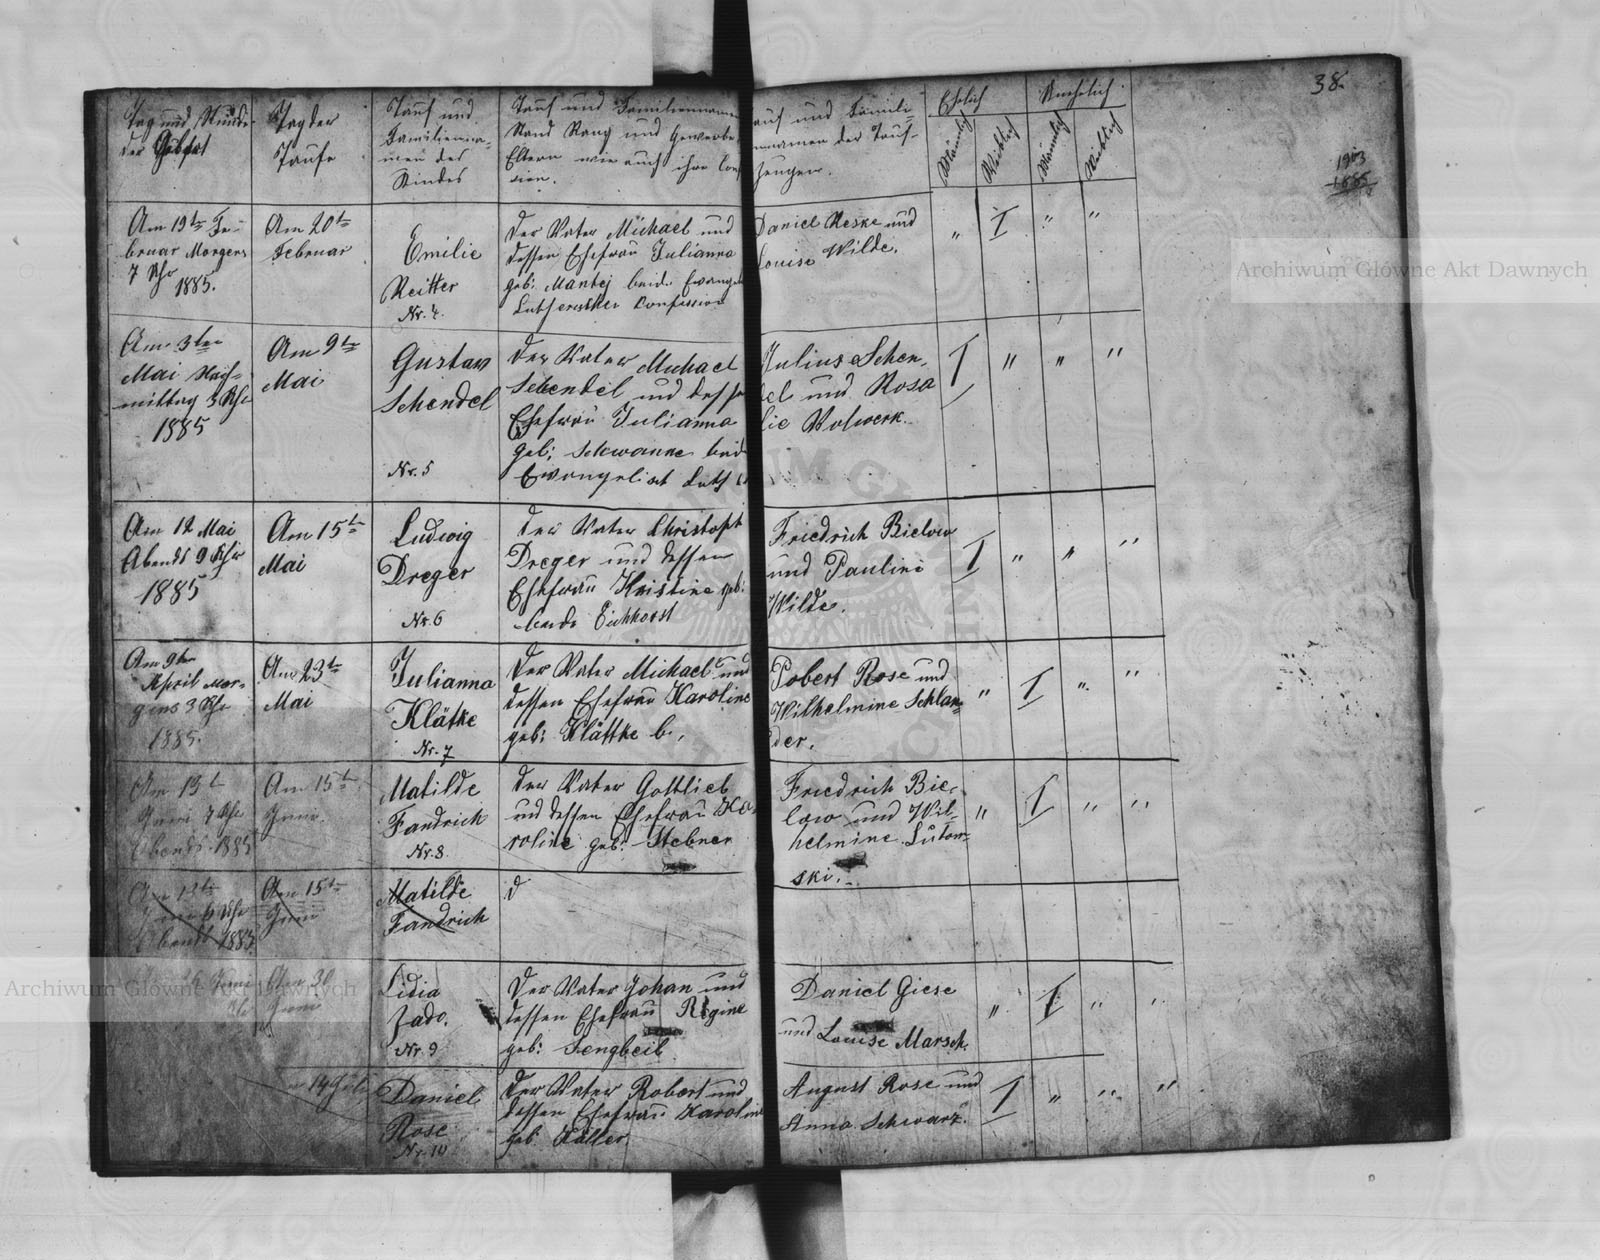 38.
Tag und Stunde
der Geburt
Tag der
Taufe
Tauf und
Familienna-
men des
Kindes
Tauf und Familiennamen
Stand Rang und Gewerbe
Eltern wie auch ihre Conf
sion.
auf und Famili-
nnamen der Tauf-
zeugen.
Ehelich
Unehelich
Mänlich
Weiblich
Mänlich
Weiblich
1903
1885
Am 19te Fe-
bruar Morgens
7 Uhr
1885.
Am 20te
Februar
Emilie
Reitter
Nr. 4.
Der Vater Michael und
dessen Ehefrau Julianna
geb: Mantej beide Evange
Lutherischer Confession
Daniel Reske und
Louise Wilde.
" I " "
Am 3ten
Mai Nach-
mittag 3 Uhr
1885
Am 9te
Mai
Gustav
Schendel
Nr. 5
Der Vater Michael
Schendel und desse
Ehefrau Julianna
geb: Schwanke beid
Evangelisch Luth
Julius Schen-
del und Rosa
lie Wolwerk.
I " " "
Am 12 Mai
Abends 9 Uhr
1885
Am 15te
Mai
Ludwig
Dreger
Nr. 6
Der Vater Christoph
Dreger und dessen
Ehefrau Kristine geb:
beide Eichhorst
Friedrich Bielow
und Pauline
Wilde.
I " " "
Am 9ten
April Mor-
gens 3 Uhr
1885.
Am 23te
Mai
Julianna
Klätke
Nr. 7
Der Vater Michael und
dessen Ehefrau Karoline
geb: Klättke b.
Robert Rose und
Wilhelmine Schlan-
der.
" I " "
Am 13t
Juni 7 Uhr
Abends 1885
Am 15t
Juni.
Matilde
Fandrich
Nr. 8.
Der Vater Gottlieb
und dessen Ehefrau Ka-
roline geb: Stebner
Friedrich Bie-
low und Wil-
helmine Lutom-
ski.
" I " "
Am 13te
Juni 6 Uhr
Abends 1885
Am 15te
Juni
Matilde
Fandrich
d
Juni
Am 30
Juni
Lidia
Zado.
Nr. 9
Der Vater Johan und
dessen Ehefrau Regine
geb: Sengbeil
Daniel Giese
und Louise Marsch.
" I " "
14 Juli
Daniel
Rose
Nr. 10
Der Vater Robert und
dessen Ehefrau Karoline
geb. Käller
August Rose und
Anna Schwarz.
I " " "
Archiwum Główne Akt Dawnych
Archiwum Główne Akt Dawnych